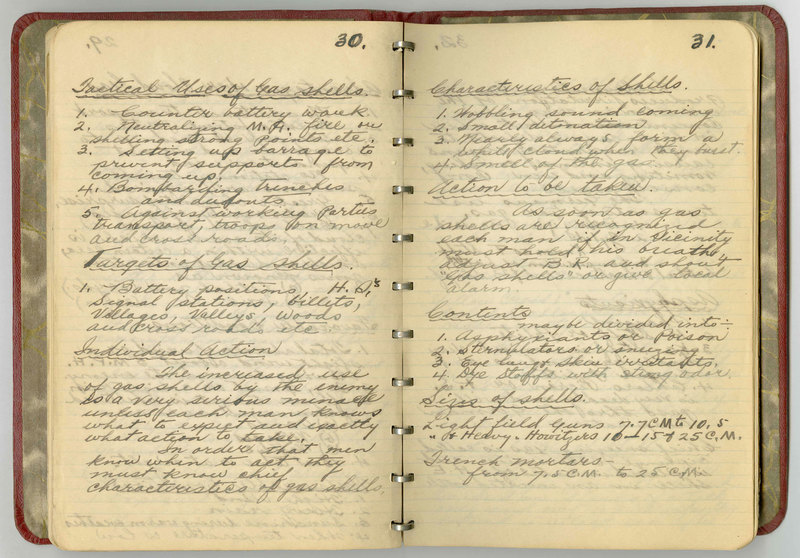 30.
Tactical Uses of Gas shells.
1. Counter battery work
2. Neutralizing M.G. fire or
shelling strong points etc.
3. Setting up barrage to
prevent support from
coming up.
4. Bombarding trenches
and dugouts
5. Against working Parties
transport, troops on move
and cross roads.
Targets of Gas shells.
1. Battery positions H.Q's
Signal stations, billets,
Villages, Valleys, woods
and cross roads etc
Individual Action
The increased use
of gas shells by the enemy
is a very serious menace
unless each man knows
what to expect and exactly
what action to take.
In order that men
know when to act they
must know chief
characteristics of gas shells,
31.
Characteristics of Shells.
1. Wobbling sound coming
2. Small detonation
3. Nearly always form a
cloud when they burst.
4. Smell of the gas
Action to be taken.
As soon as gas
shells are recognized
each man if in Vicinity
must hold his breath
adjust B.R. and
"Gas shells" or give local
alarm.
Contents
may be divided into:-
1. Asphyxiants or Poison
2. Sternutators or sneezing
3. Eye Lungs Skin irritants.
4. Stuffs with odor
Sizes of shells.
Light field Guns 7.7 CM to 10.5
" & Heavy. Howitzers 10-15 & 25 C.M.
Trench mortars-
from 7.5 C.M. to 25 C.M.